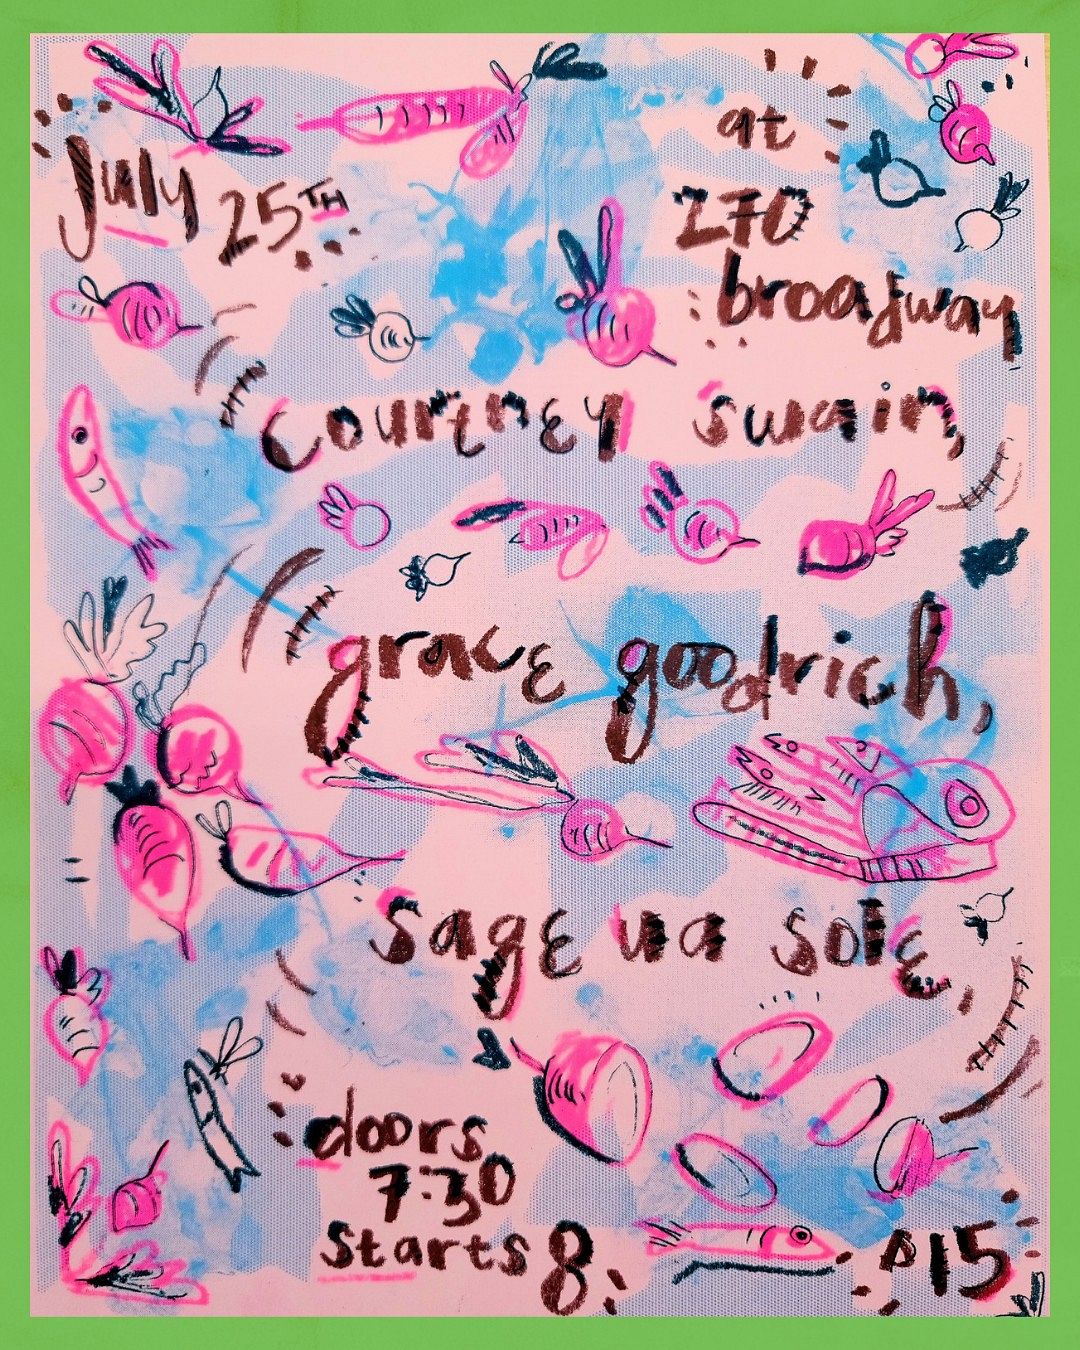 July 25TH
at
270
broadway
courtney swain,
grace goodrich,
sage ua sole,
doors
7:30
starts 8
$15